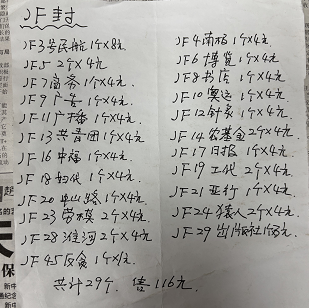 JF封
JF3号民航1个×8元
JF5 2个×4元
JF7商务1个×4元
JF9广告1个×4元
JF11广播1个×4元
JF13共青团1个×4元
JF16申福1个×4元
JF18妇代1个×4元
JF20中山路1个×4元
JF23劳模2个×4元
JF28淮河2个×4元
JF45反贪1个×1元
JF4南极1个×4元
JF6博览1个×4元
JF8书店1个×4元
JF10奥运1个×4元
JF12针灸1个×4元
JF14农基金2个×4元
JF17日报1个×4元
JF19工代2个×4元
JF21亚行1个×4元
JF24猿人2个×4元
JF29出版社1个8元
共计29个. 售116元.